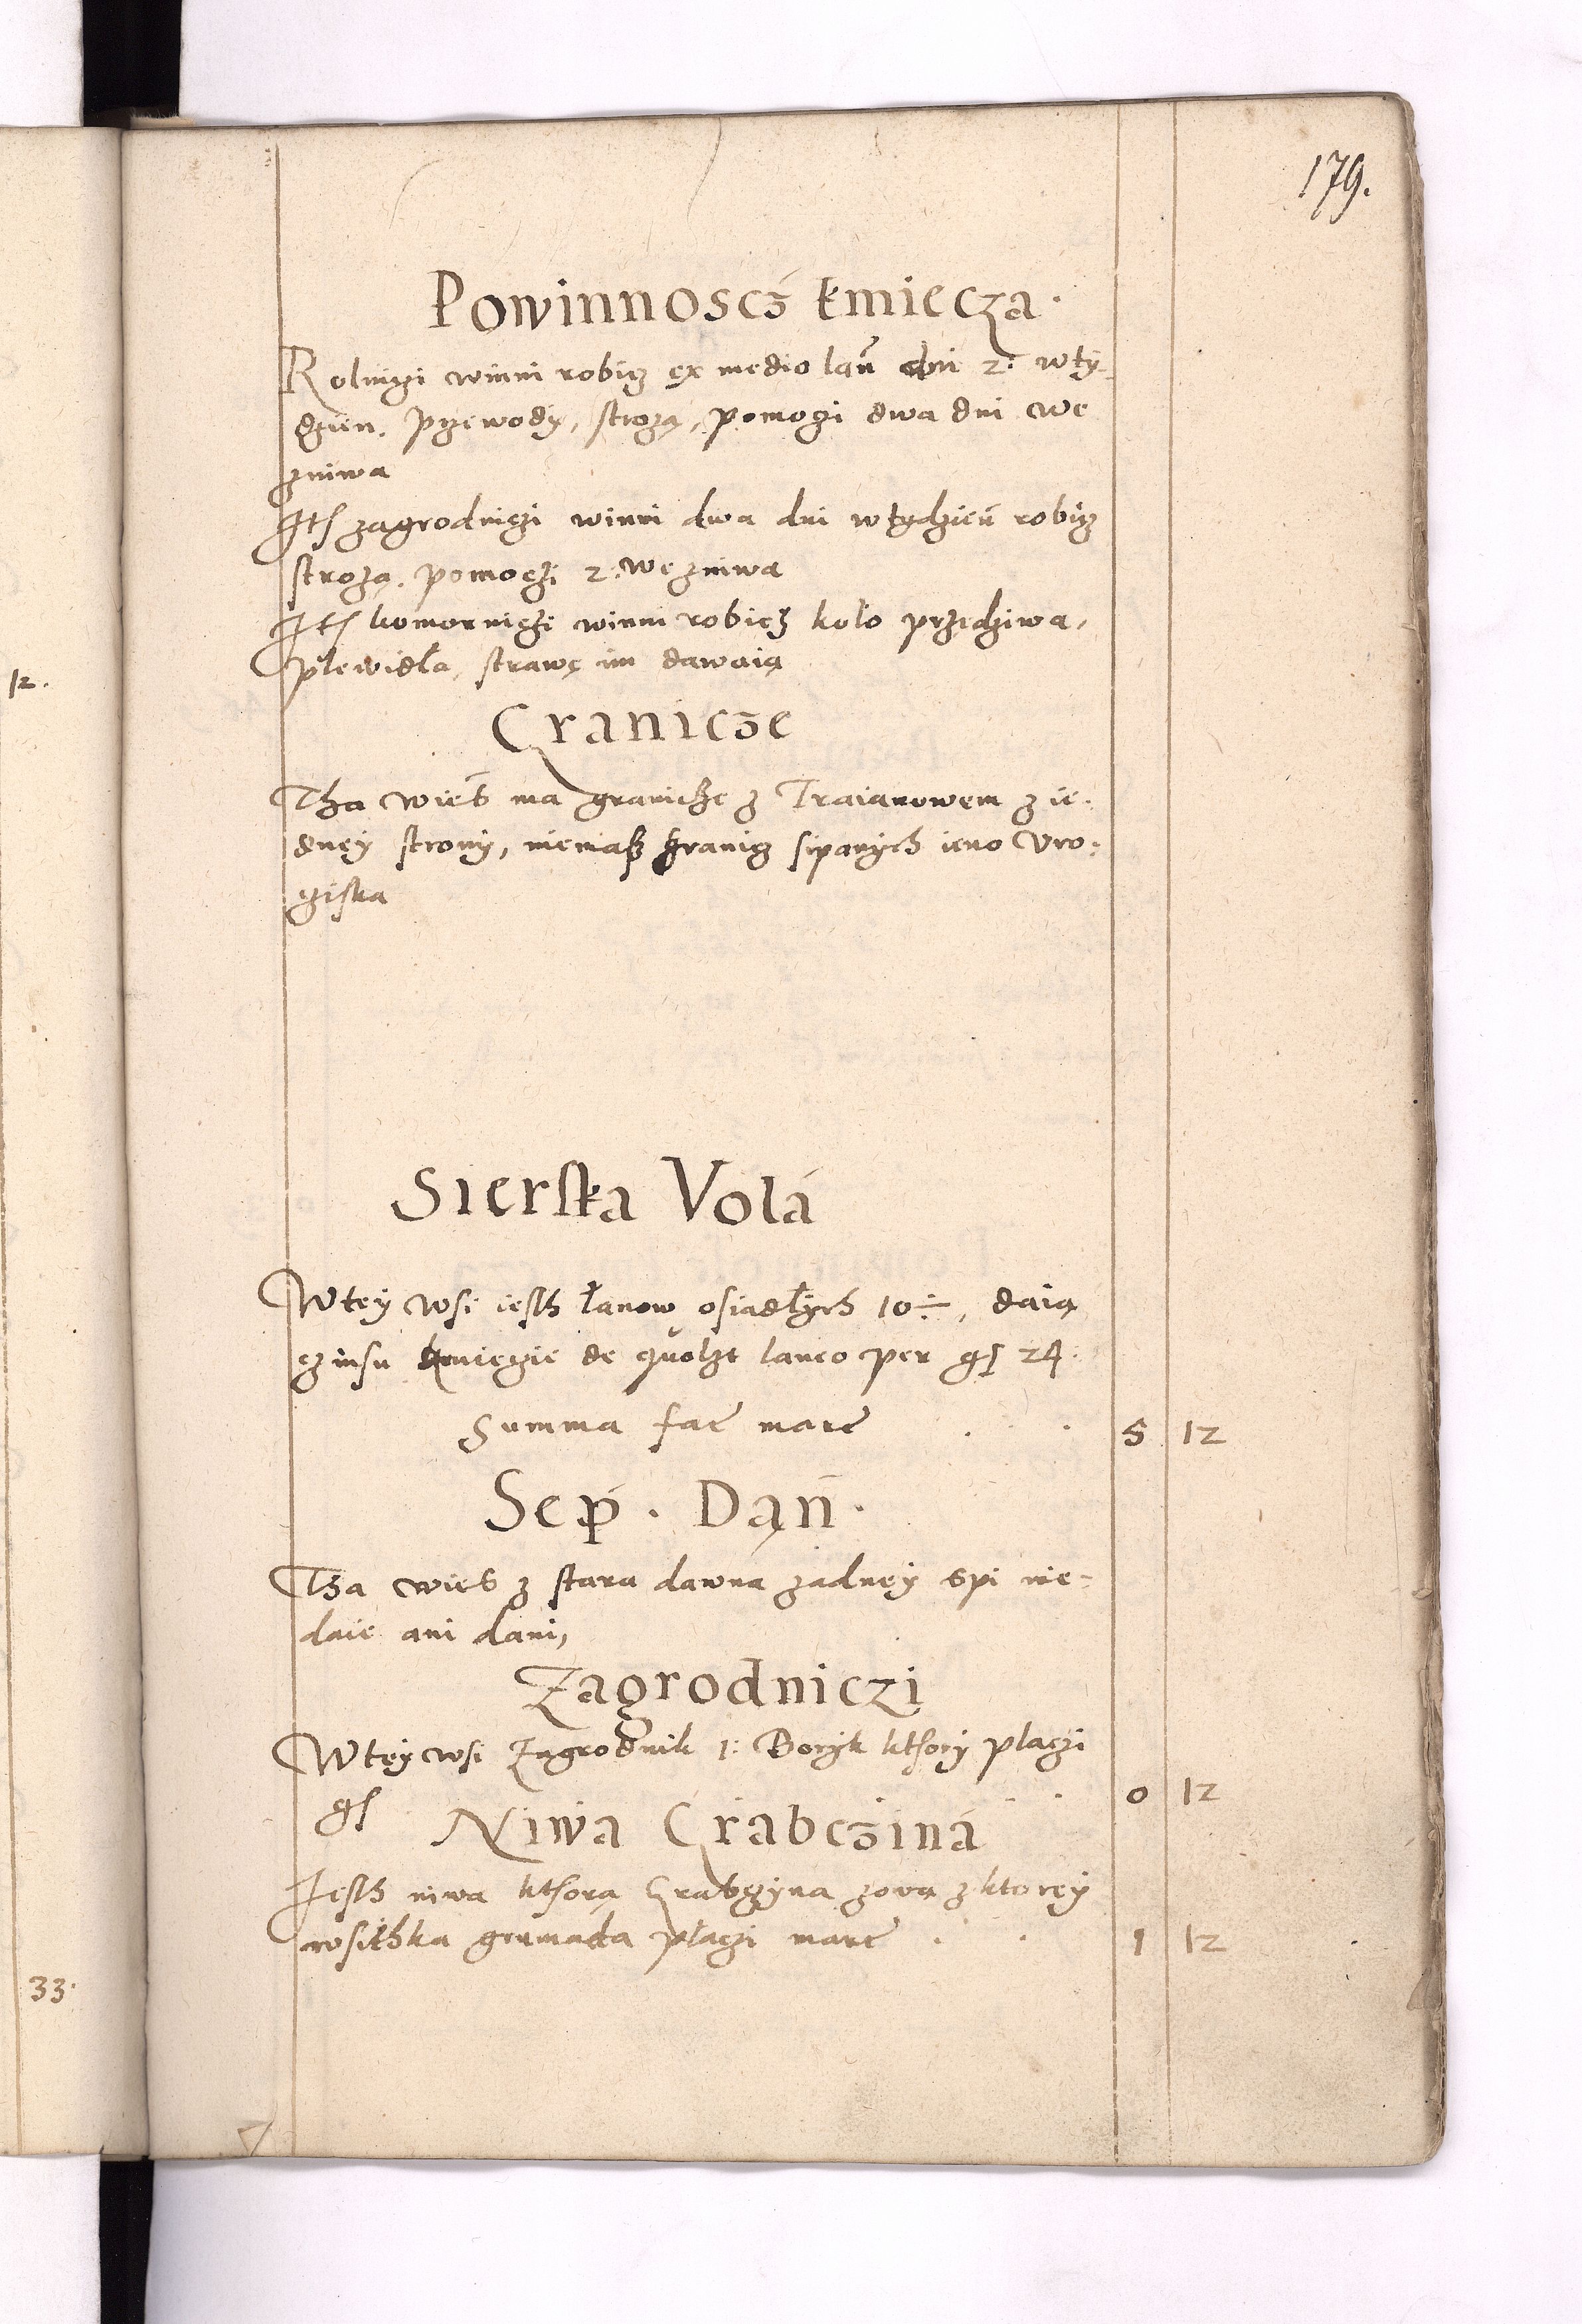 179.
Powinnoscz kmiecza.
Rolniczi winni robicz ex medio lan̄ dni 2: w ty-
dzien. przewody, strozą, pomogi dwa dni we
zniwa
Itꝭ zagrodniczi winni dwa dni w tydzień robicz
strozą. pomoczi 2: we zniwa
Itꝭ komorniczi winni robicz koło przedziwa,
plewidła, strawę im dawaią
Granicze
Tha wieś ma granicze z Traianowem z ie-
dney strony, niemasz granicz sipanych ieno Vro-
cziska
Sierska Volá
W tey wsi iesth łanow osiadłych 10÷, daią
czinsu kmiecie de quolzt laneo per gꝭ 24.
Summa fac̄ marc̄ . . 5 12
Sep. Dąń.
Tha wieś z stara dawna zadney spi nie-
daie ani dani,
Zagrodniczi
W tey wsi Zagrodnik 1: Boryk kthory placzi
gꝭ . . . 0 12
Niwa Grabcziná
Iesth niwa kthora Grabczyna zową z ktorey
wsithka gromada płaczi marc̄ . . 1 12
12.
33.